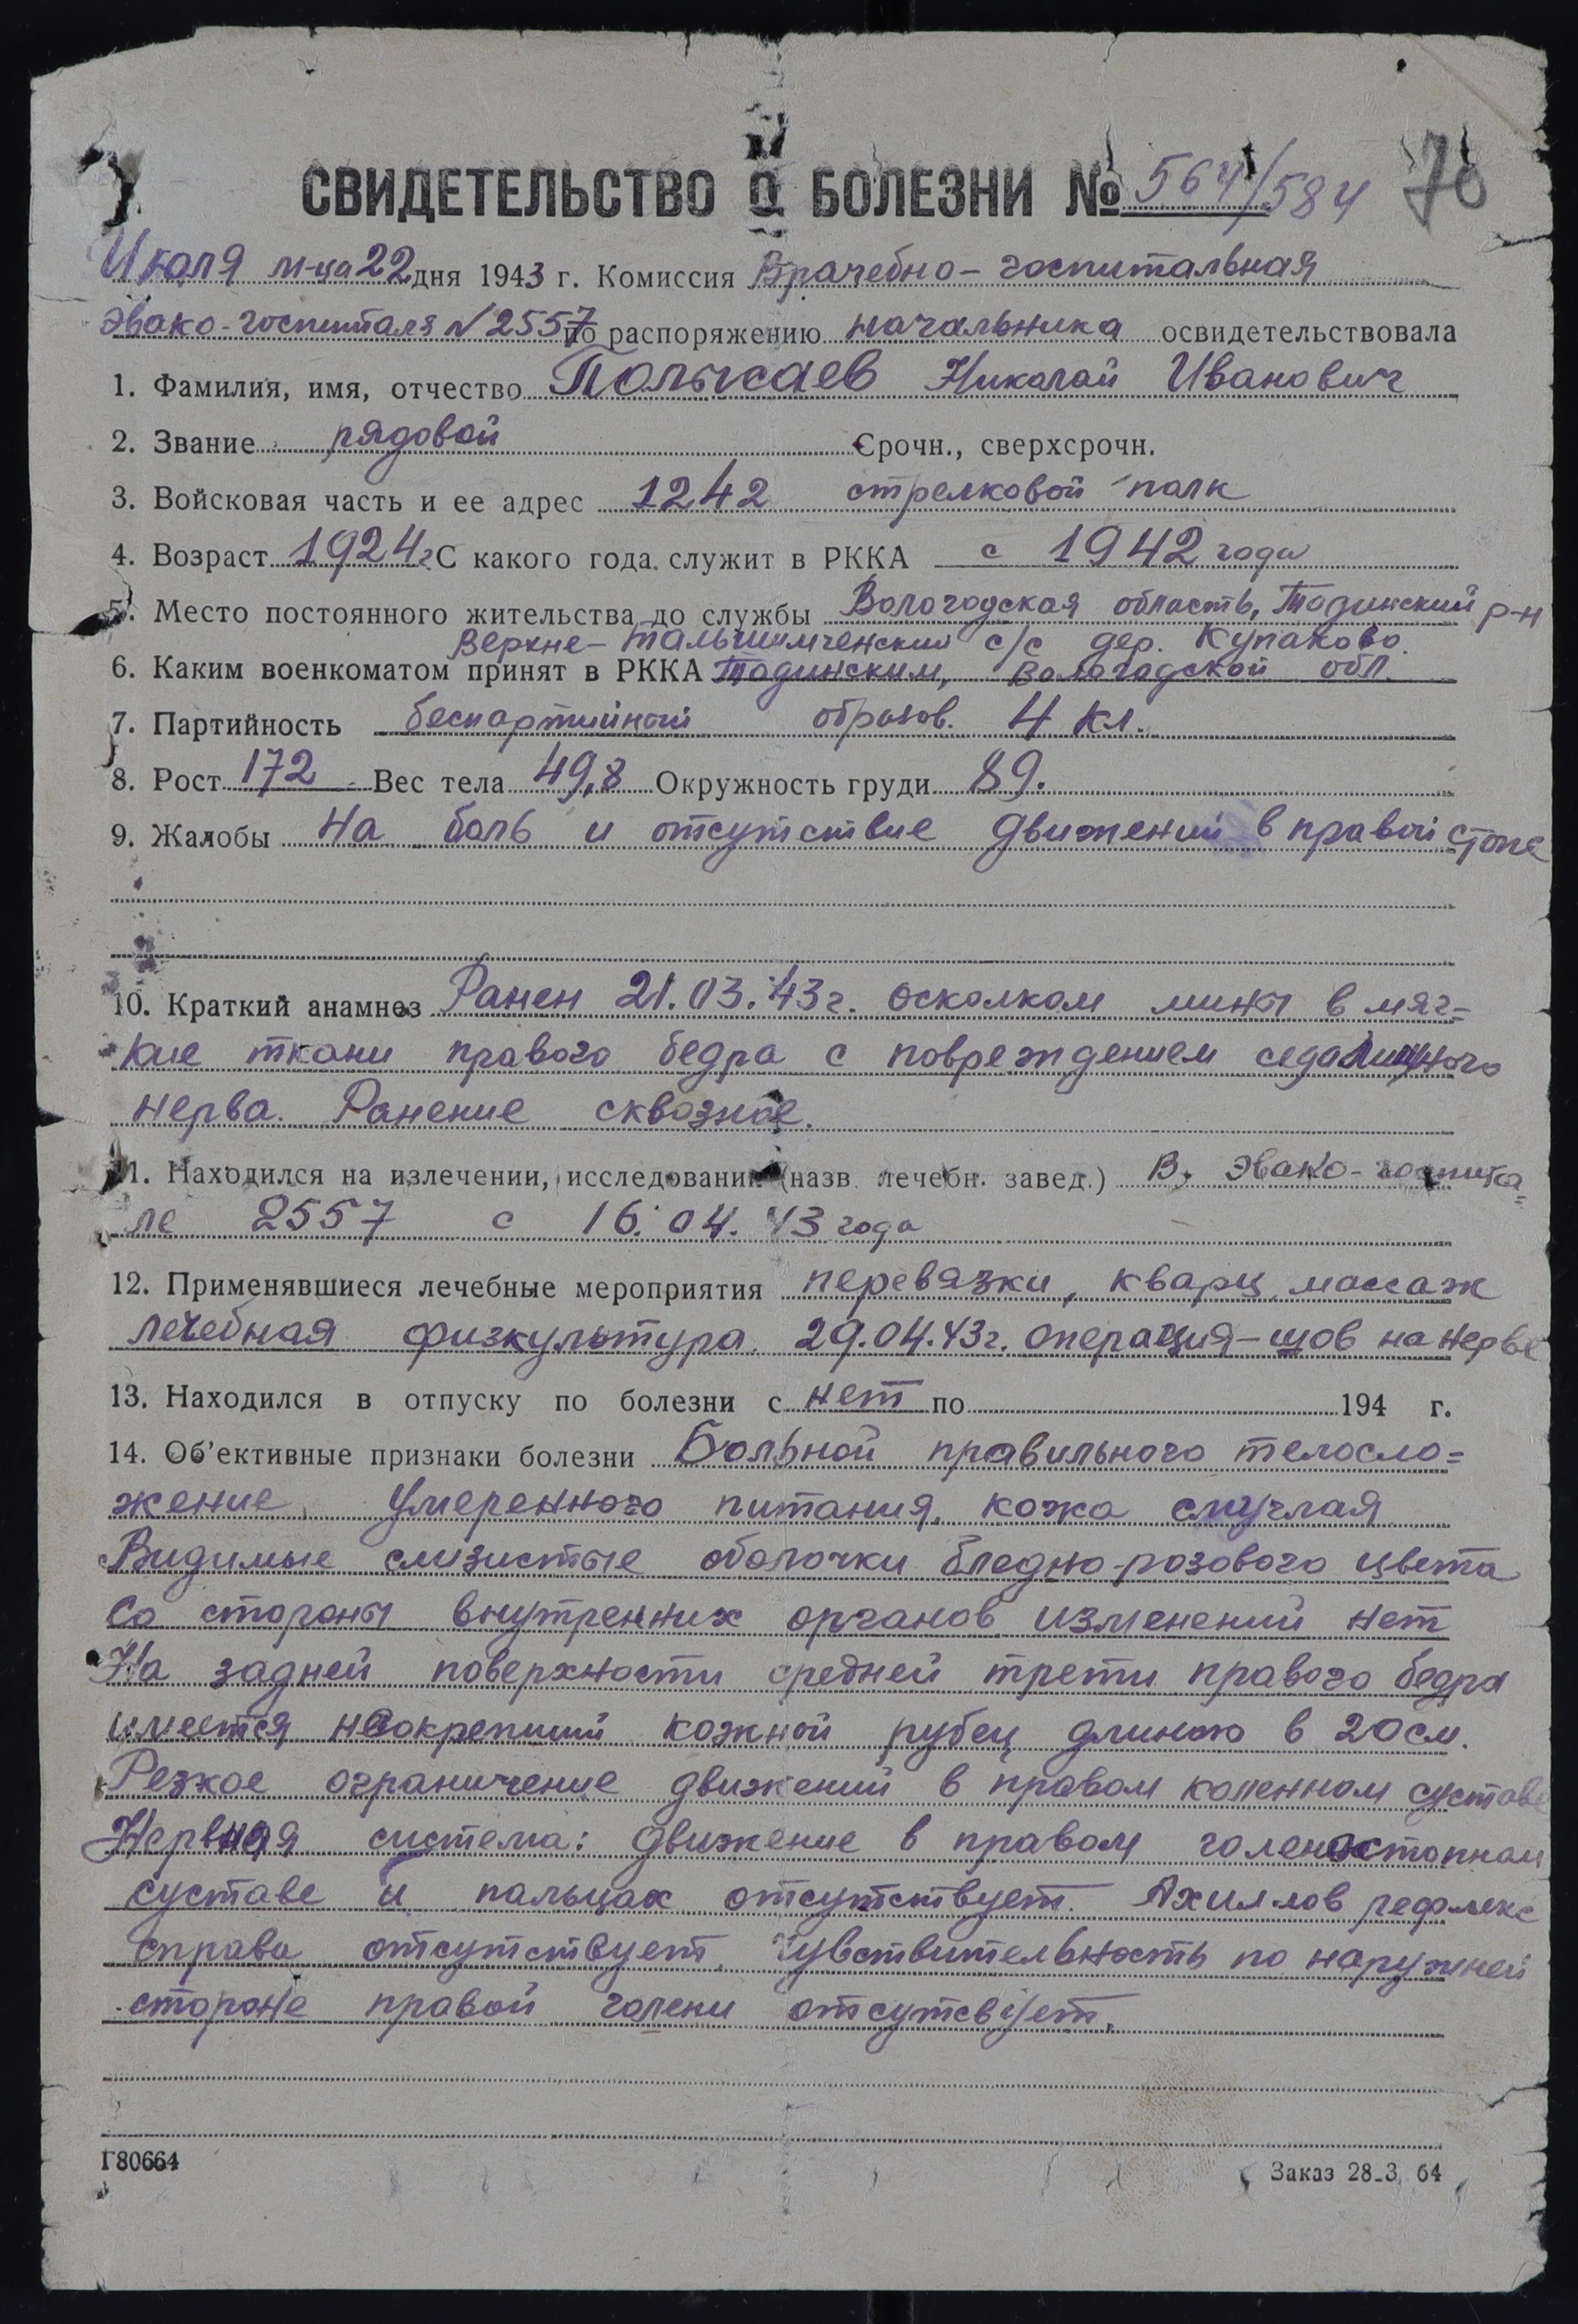 СВИДЕТЕЛЬСТВО о БОЛЕЗНИ № 564/584 70
Июля м-ца 22 дня 1943 г. Комиссия Врачебно-госпитальная
Эвако-госпиталя № 2557 по распоряжению начальника освидетельствовала
1. Фамилия, имя, отчество Полысаев Николай Иванович
2. Звание рядовой Срочн., сверхсрочн.
3. Войсковая часть и ее адрес 1242 стрелковой полк
4. Возраст 1924 г С какого года служит в РККА с 1942 года
5. Место постоянного жительства до службы Вологодская область, р-н
Верхне- с/с дер.
6. Каким военкоматом принят в РККА Вологодской обл.
7. Партийность беспартийный образов. 4 кл.
8. Рост 172 Вес тела 49,8 Окружность груди 89.
9. Жалобы На боль и отсутствие движений в правой стопе
10. Краткий анамнез Ранен 21.03.43 г. осколком мины в мяг=
кие ткани правого бедра с повреждением седалищного
нерва. Ранение сквозное.
11. Находился на излечении, исследовании (назв. лечебн. завед.) В. Эвако-госпита=
ле 2557 с 16.04.43 года
12. Применявшиеся лечебные мероприятия перевязки, кварц, массаж
лечебная физкультура. 29.04.43 г. операция-шов на нерве
13. Находился в отпуску по болезни с нет по 194 г.
14. Об'ективные признаки болезни Больной правильного телосло=
жение, умеренного питания, кожа смуглая
Видимые слизистые оболочки бледно-розового цвета
Со стороны внутренних органов изменений нет
На задней поверхности средней трети правого бедра
имеется неокрепший кожной рубец длиною в 20 см.
Резкое ограничение движений в правом коленном суставе
Нервная система: движение в правом голеностопном
суставе и пальцах отсутствует. Ахиллов рефлекс
справа отсутствует, чувствительность по наружней
стороне правой голени отсутсвует.
Г80664
Заказ 28-3 64